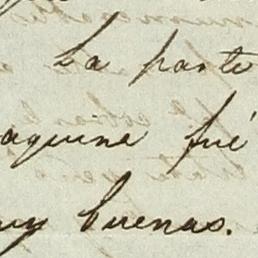 La parte
aquina fué
uy buenas.